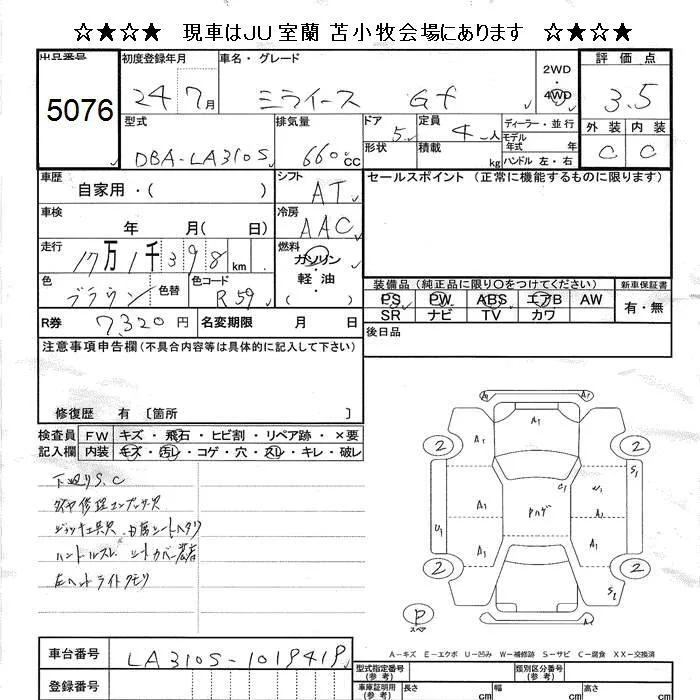 ☆★☆★ 現車はJU室蘭 苫小牧会場にあります ☆★☆★
出品番号 初度登録年月 車名・グレード 2WD 4WD 評価点
5076 24 7月 ミライース Gf 3.5
型式 排気量 ドア 定員 ディーラー・並行 外装 内装
DBA-LA310S 660cc 5 4人 モデル年式 年 C C
形状 積載 kg ハンドル 左・右
車歴 自家用・( ) シフト AT セールスポイント (正常に機能するものに限ります)
車検 年 月(日) 冷房 AAC
走行 17万1千398km 燃料 ガソリン・軽油 ( )
色 ブラウン 色替 色コード R59
装備品 (純正品に限り〇をつけてください) 新車保証書
PS PW ABS エアB AW 有・無
SR ナビ TV カワ
R券 7320円 名変期限 月 日 後日品
注意事項申告欄 (不具合内容等は具体的に記入して下さい)
修復歴 有 〔箇所 〕
検査員 FW キズ・飛石・ヒビ割・リペア跡・×要
記入欄 内装 キズ・汚レ・コゲ・穴・スレ・キレ・破レ
下廻りS.C
タイヤ修理コンプレッサー欠
ジャッキ工具欠
ハンドルスレ シートカバー装着
左ヘッドライトクモリ
A1 A1
A1
2 A1 2
S1
A1 A1
U1
A1 A1
2 2
S2
P
スペア
A-キズ E-エクボ U-凹み W-補修跡 S-サビ C-腐食 XX-交換済
車台番号 LA310S-1019419
型式指定番号(参考) 類別区分番号(参考)
登録番号 車庫証明用(参考) 長さ cm 幅 cm 高さ cm